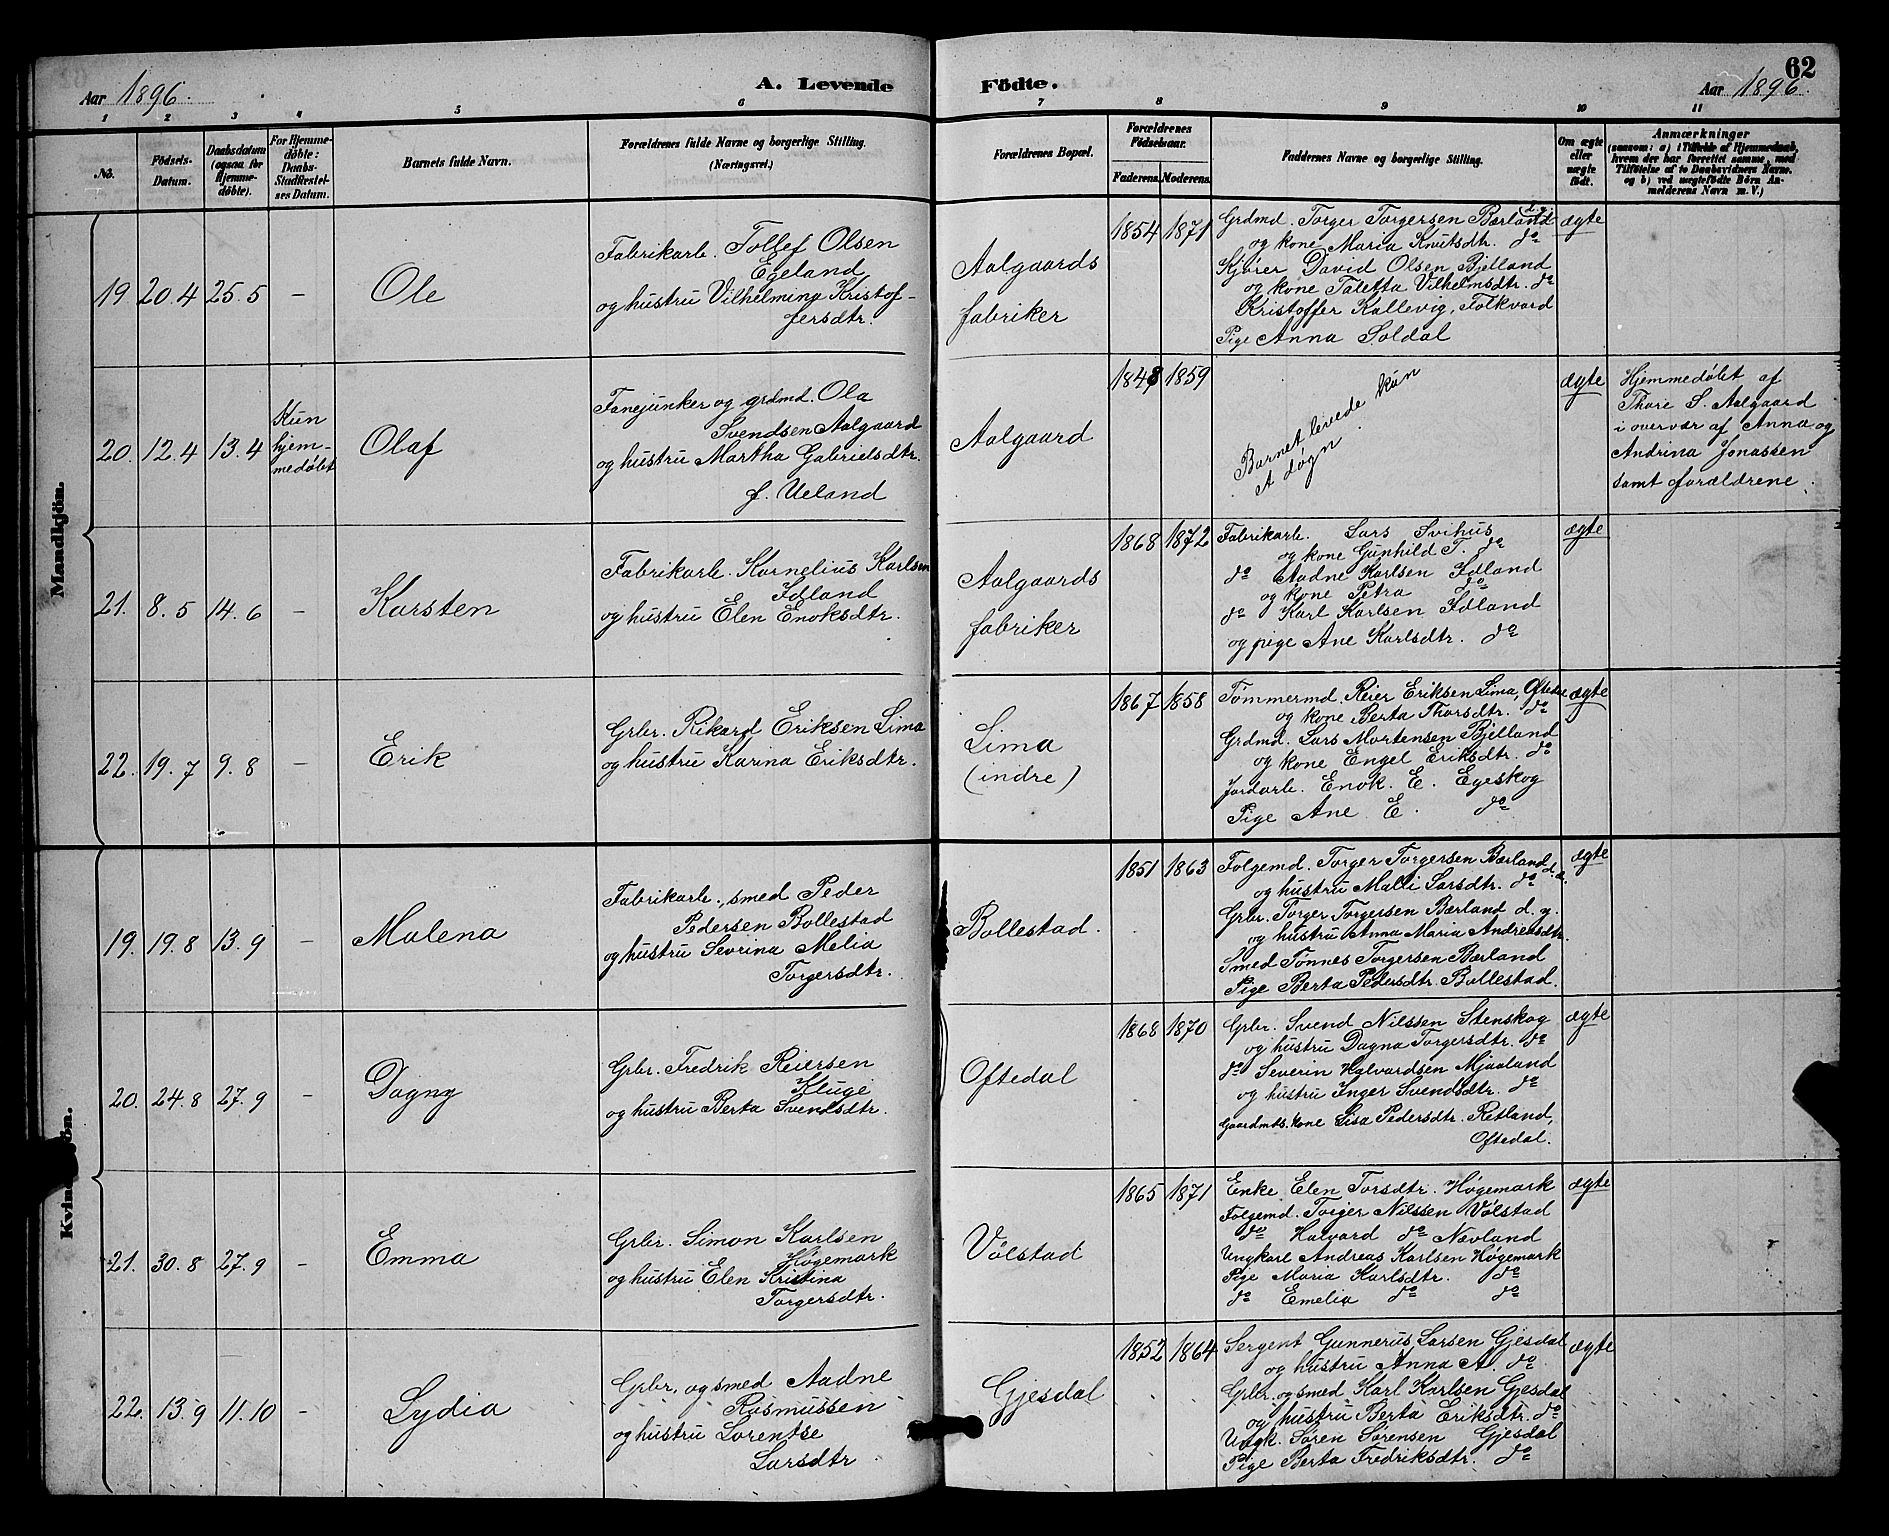 62
Aar 1896.
A. Levende
Födte.
Aar 1896.
1 2 3 4 5 6 7 8 9 10 11
No.
Födsels-
Datum.
Daabsdatum
(ogsaa for
Hjemme-
döbte).
For Hjemme-
döbte:
Daabs-
Stadfæstel-
ses Datum.
Barnets fulde Navn.
Forældrenes fulde Navne og borgerlige Stilling.
(Næringsvei.)
Forældrenes Bopæl.
Forældrenes
Födselsaar.
Faderens. Moderens.
Faddernes Navne og borgerlige Stilling.
Om ægte
eller
uægte
födt.
Anmærkninger
(saasom: a) i Tilfælde af Hjemmedaab,
hvem der har forrettet samme, med
Tilföielse af to Daabsvidners Navne,
og b) ved uægtefödte Börn An-
melderens Navn m. V.)
Mandkjön.
19 20.4 25.5 —
Ole
Fabrikarb. Tollef Olsen
Egeland
og hustru Vilhelmina Kristof-
fersdtr.
Aalgaards
fabriker
1854 1871
Grdmd. Torger Torgersen Bærland d.y.
og kone Maria Knutsdtr. do
Kjører David Olsen Bjelland
og kone Taletta Vilhelmsdtr. do
Kristoffer Kallevig, Folkvord
Pige Anna Soldal
ægte
20. 12.4 13.4
Kun
hjem-
medøbt
Olaf
Fanejunker og grdmd. Ola
Svendsen Aalgaard
og hustru Martha Gabrielsdtr.
f. Ueland
Aalgaard
1848 1859
Barnet levede kun
et døgn.
ægte
Hjemmedøbt af
Thore S. Aalgaard
i overvær af Anna og
Andrina Jonassen
samt forældrene.
21. 8.5 14.6 —
Karsten
Fabrikarb. Kornelius Karlsen
Idland
og hustru Elen Enoksdtr.
Aalgaards
fabriker
1868 1872
Fabrikarb. Lars Svihus
og kone Gunhild T. do
do Aadne Karlsen Idland
og kone Petra do
do Karl Karlsen Idland
og pige Ane Karlsdtr. do
ægte
22. 19.7 9.8 —
Erik
Grbr. Rikard Eriksen Lima
og hustru Karina Eriksdtr.
Lima
(indre)
1867 1858
Tømmermd. Reier Eriksen Lima, Oftedal
og kone Berta Thorsdtr. do
Grdmd. Lars Mortensen Bjelland
og kone Engel Eriksdtr. do
Jordarb. Enok E. Egeskog
Pige Ane E. do
ægte
Kvindekjön.
19. 19.8 13.9 —
Malena
Fabrikarb., smed Peder
Pedersen Bollestad
og hustru Sevrina Melia
Torgersdtr.
Bollestad.
1851 1863
Folgemd. Torger Torgersen Bærland d.æ.
og hustru Malli Larsdtr. do
Grbr. Torger Torgersen Bærland d. y.
og hustru Anna Maria Andreasdtr.
Smed Tønnes Torgersen Bærland
Pige Berta Pedersdtr. Bollestad.
ægte
20. 24.8 27.9 —
Dagny
Grbr. Fredrik Reiersen
Kluge
og hustru Berta Svendsdtr.
Oftedal
1868 1870
Grbr. Svend Nilssen Stenskog
og hustru Dagna Torgersdtr. do
do Severin Halvardsen Mjaaland
og hustru Inger Svendsdtr. do
Gaardmds. kone Lisa Pedersdtr. Retland,
Oftedal.
ægte
21. 30.8 27.9 —
Emma
Grbr. Simon Karlsen
Høgemark
og hustru Elen Kristina
Torgersdtr.
Vølstad
1865 1871
Enke Elen Torsdtr. Høgemark
Folgemd. Torger Nilssen Vølstad
do Halvard do Nævland
Ungkarl Andreas Karlsen Høgemark
Pige Maria Karlsdtr. do
do Emelia do do
ægte
22. 13.9 11.10 —
Lydia
Grbr. og smed Aadne
Rasmussen
og hustru Lorentse
Larsdtr.
Gjesdal
1852 1864
Sergent Gunnerus Larsen Gjesdal
og hustru Anna A. do
Grbr. og smed Karl Karlsen Gjesdal
og hustru Berta Eriksdtr. do
Ungk. Søren Sørensen Gjesdal
Pige Berta Fredriksdtr. do
ægte